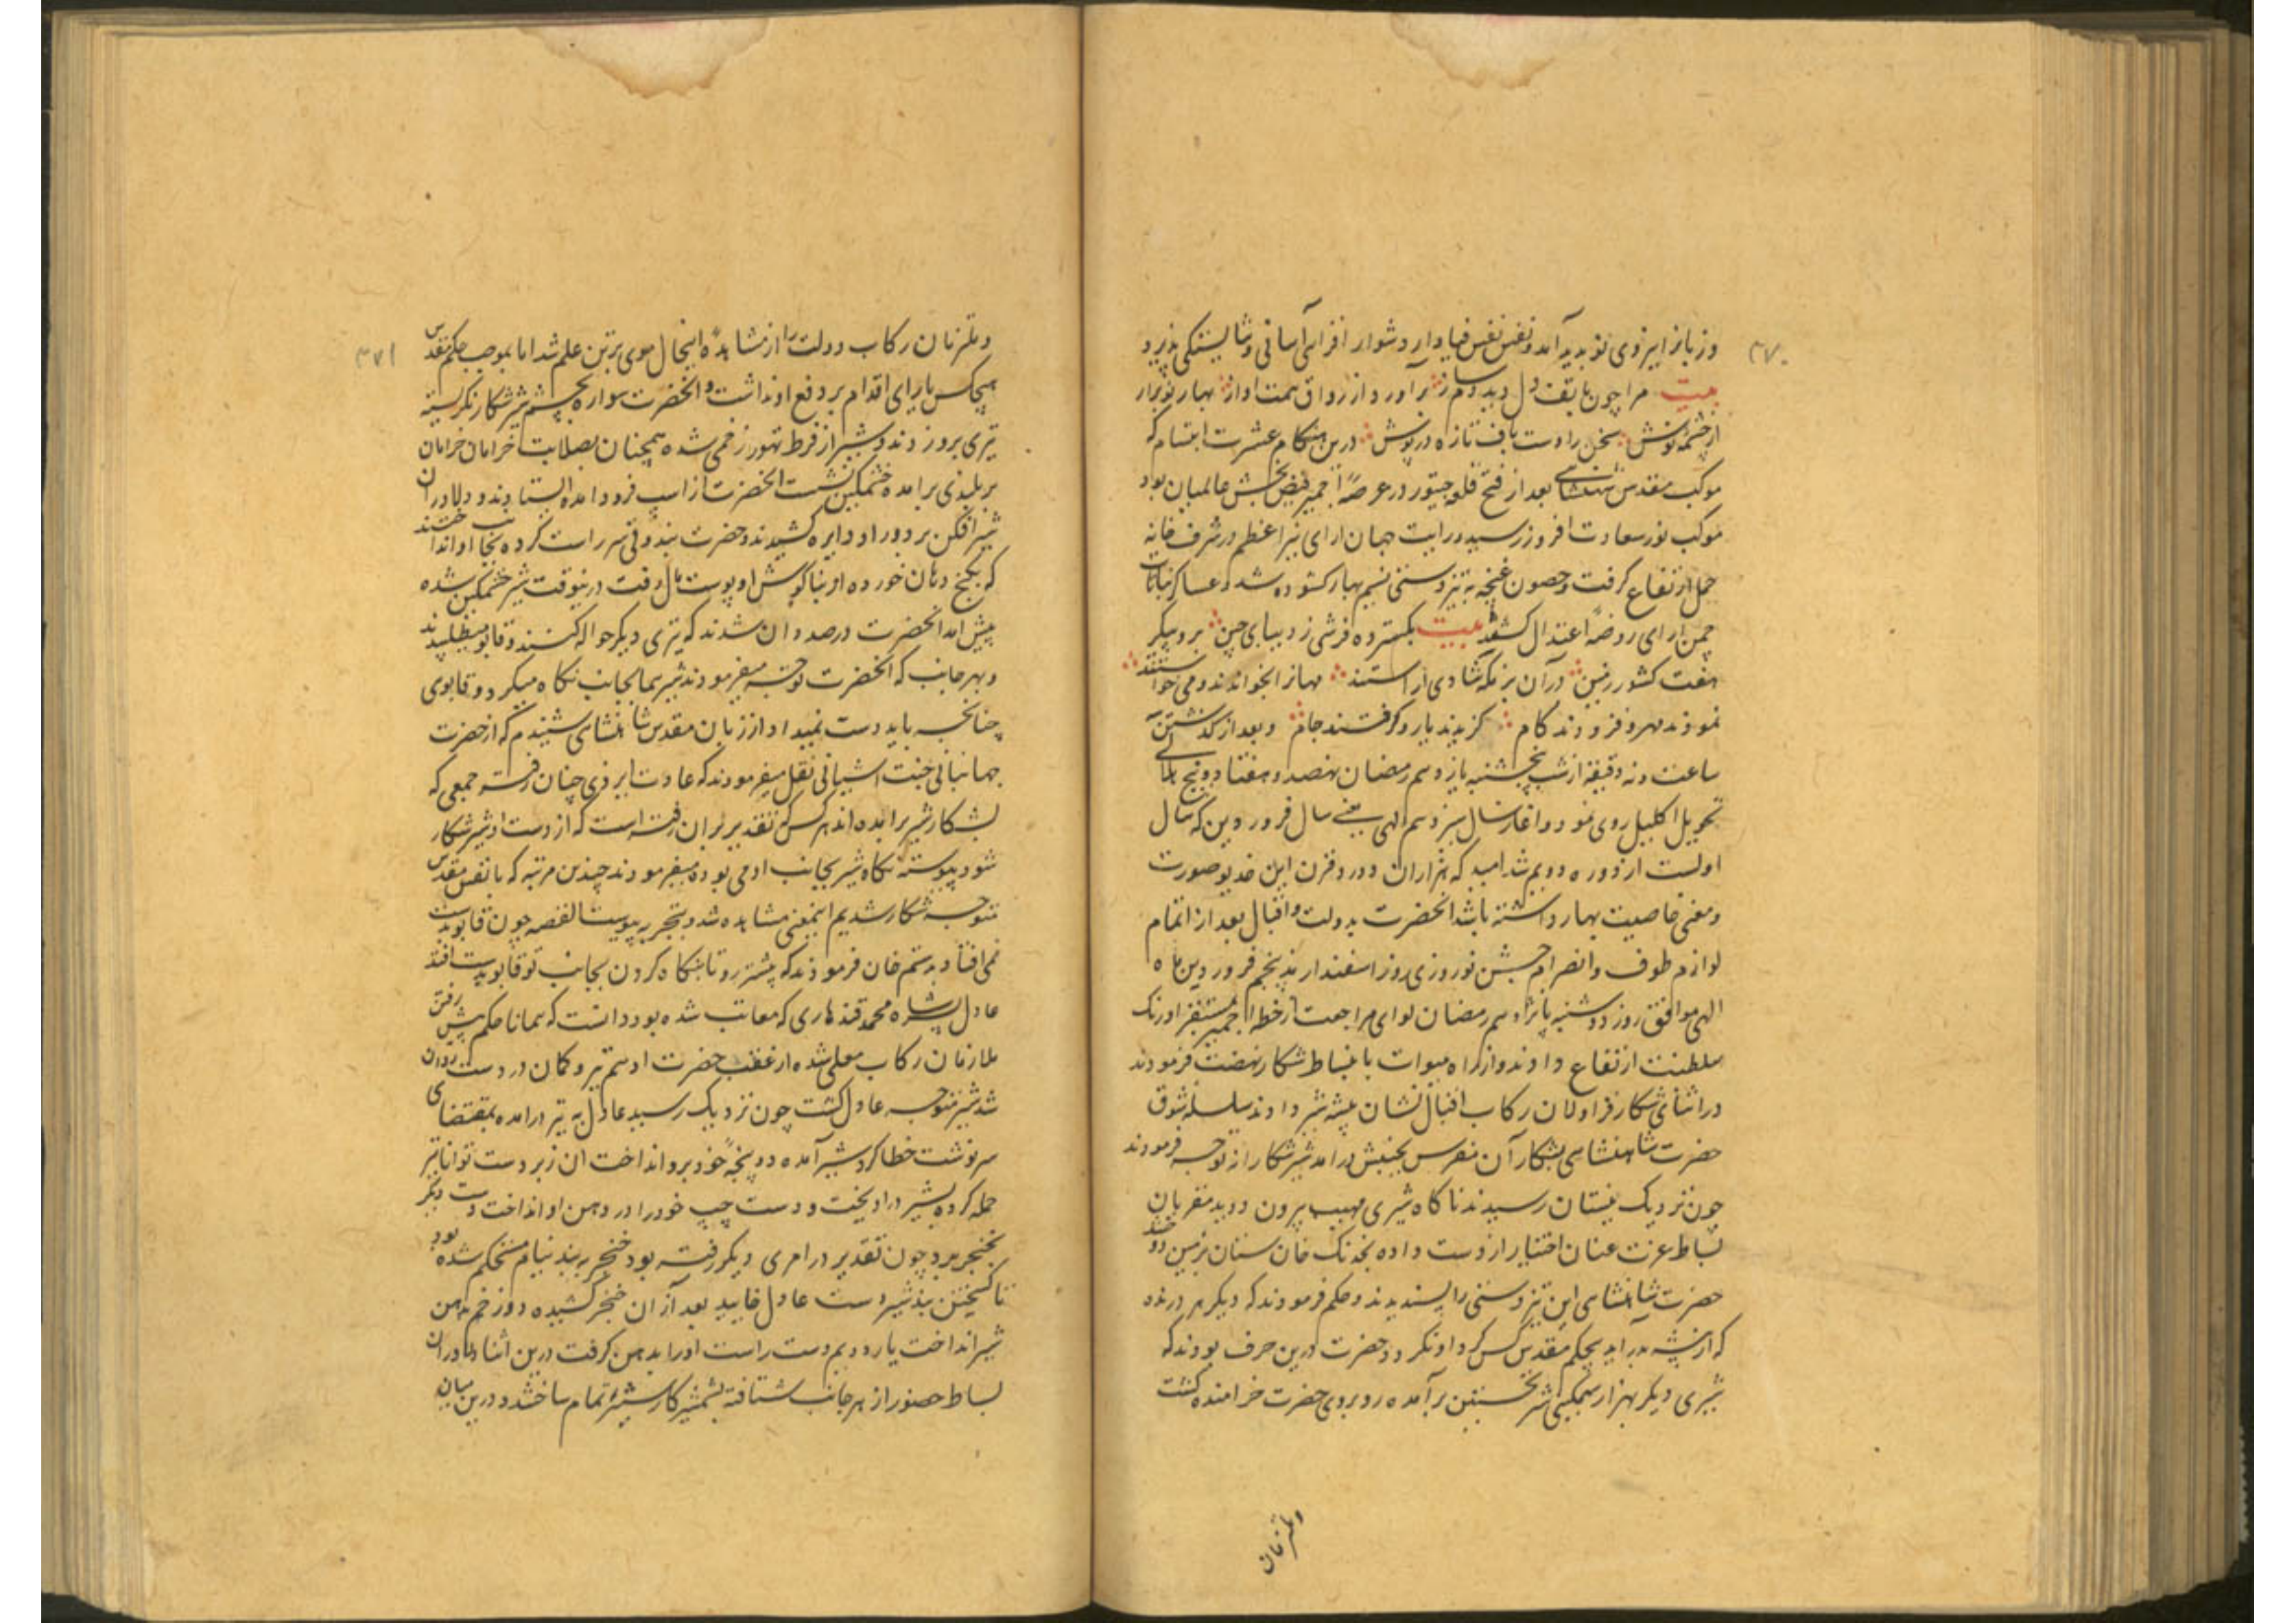 ۳۷۰
بیت مرا چون هاتف دل دید دمساز برآورد از رواق همت آواز بهار نو برار
از چشمه نوش سخن را دست باف تازه درپوش درین هنکام عشرت ابتسام که
موکب مقدس شهنشاهی بعد از فتح قلعه چیتور در عرصهٔ اجمیر فیض بخش عالمیان بود
موکب نوز سعادت افروز رسید و رایت جهان ارای نیر اعظم در شرف خانه
حمل ارتفاع کرفت و حصون غنچه به تیزدستی نسیم بهار کشوده شد و عساکر نباتات
چمن ارای روضهٔ اعتدال کشتند بیت بکسترده فرشی ز دیبای چین برو پیکر
هفت کشور زمین دران بزمکه شادی آراستند مهانرا بخواندند و می خواستند
نمودند مهر و فزودند کام کزیدند یار و کرفتند جام و بعد از کذشتن
ساعت و نه دقیقه از شب پنجشنبه یازدهم رمضان نهصد و هفتاد و پنج هلالی
تحویل اکلیل روی نمود و اغاز سال سیزدهم الهی یعنی سال فروردین که سال
اولست از دوره دویم شد امید که هزاران دور و قرن این خدیو صورت
و معنی خاصیت بهار داشته باشد انحضرت بدولت و اقبال بعد از اتمام
لوازم طوف و انصرام جشن نوروزی روز اسفندارمذ پنجم فروردین ماه
الهی موافق روز دوشنبه پانزدهم رمضان لوای مراجعت از خطهٔ اجمیر بمستقر اورنک
سلطنت ارتفاع دادند و از راه میوات بانبساط شکار نهضت فرمودند
در اثنای شکار قراولان رکاب اقبال نشان بیشه شیر دادند سلسله شوق
حضرت شاهنشاهی بشکار آن مفرس بجنبش درامد شیرشکارانه توجه فرمودند
چون نزدیک نیستان رسیدند ناکاه شیری مهیب بیرون دوید مقربان
بساط عزت عنان اختیار از دست داده بخدنک جان ستان بزمین دوختند
حضرت شاهنشاهی این تیزدستی را پسندیدند و حکم فرمودند که دیکر هر درنده
که از بیشه براید بی حکم مقدس کس کرد او نکردد حضرت درین حرف بودند که
شیری دیکر بهزار سهمکینی شیر نخستین برآمده روبروی حضرت خرامنده کشت
وملازمان
۳۷۱
وملازمان رکاب دولت را از مشاهدهٔ اینحال موی بر تن علم شد اما بموجب حکم مقدس
هیچکس یارای اقدام بر دفع او نداشت و انحضرت سواره بچشم شیرشکار نکریسته
تیری برو زدند و شیر از فرط تهور زخمی شده همچنان بصلابت خرامان خرامان
بر بلندی برامده خشمکین نشست انحضرت از اسپ فرود امده ایستادند و دلاوران
شیرافکن بر دور او دایره کشیدند و حضرت بندوقی سر راست کرده بجانب او انداختند
که بکنج دهان خورده از بناکوش او پوست مال رفت درینوقت شیر خشمکین شده
پیش امد انحضرت درصدد ان شدند که تیری دیکر حواله کنند و قابو میطلبیدند
و بهر جانب که انحضرت توجه میفرمودند شیر همانجانب نکاه میکرد و قابوی
چنانچه باید دست نمیداد از زبان مقدس شاهنشاهی شنیدم که از حضرت
جهانبانی جنت اشیانی نقل میفرمودند که عادت ایزدی چنان رفته جمعی که
بشکار شیر برامده اند هر کس که تقدیر بران رفته است که از دست او شیر شکار
شود پیوسته نکاه شیر بجانب ادمی بوده میفرمودند چندین مرتبه که بانفس مقدس
متوجه شکار شدیم اینمعنی مشاهده شد و بتجربه پیوست القصه چون قابو بدست
نمی افتاد برستم خان فرمودند که پیشتر رو تا بنکاه کردن بجانب تو قابو بدست افتد
عادل پسر شاه محمد قندهاری که معاتب شده بود دانست که همانا حکم پیش رفتن
ملازمان رکاب معلی شده از عقب حضرت او هم تیر و کمان در دست روان
شد شیر متوجه عادل کشت چون نزدیک رسید عادل به تیر درامده بمقتضای
سرنوشت خطا کرد شیر آمده دو پنجهٔ خود برو انداخت ان زبردست توانا نیز
حمله کرده بشیر دراویخت و دست چپ خود را در دهن او انداخت و دست دیکر
بخنجر برد چون تقدیر در امری دیکر رفته بود خنجر به بند نیام مستحکم شده بود
تا کسیختن بند شیر دست عادل خایید بعد از ان خنجر کشیده دو زخم بدهن
شیر انداخت بار دویم دست راست او را بدهن کرفت درین اثنا دلاوران
بساط حضور از هر جانب شتافته بشمشیر کار شیر را تمام ساختند و درین میان